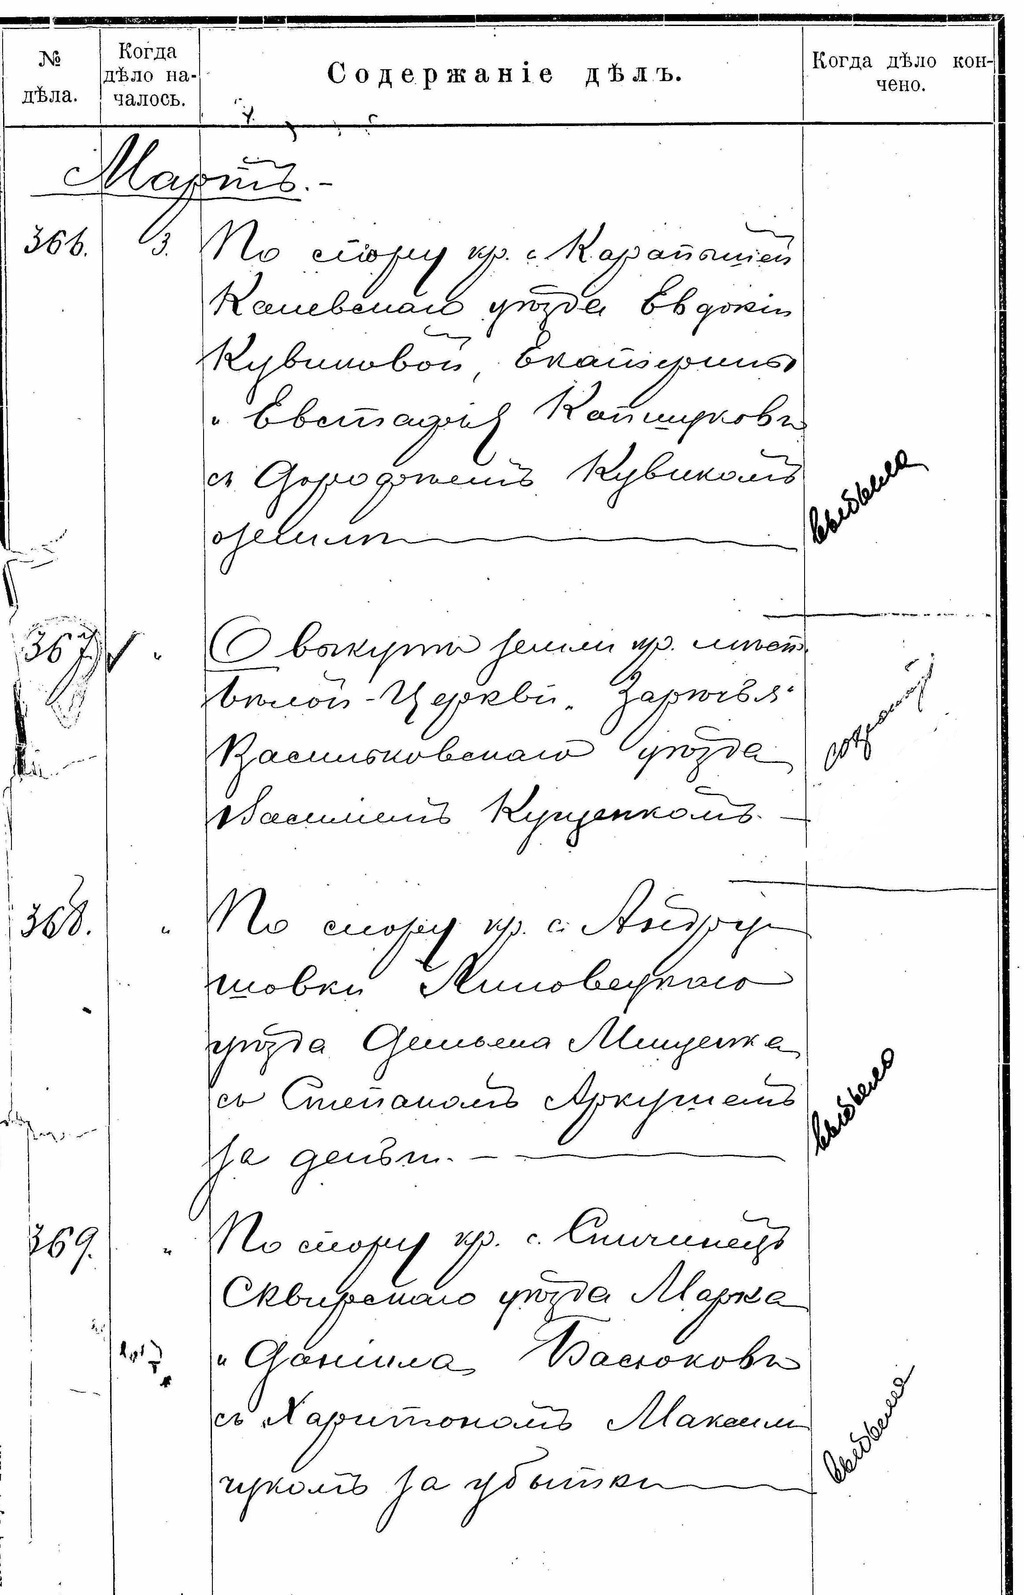 № дѣла.
Когда дѣло началось.
Содержаніе дѣлъ.
Когда дѣло кончено.
Мартъ.
366. 3. По спору кр. с. Карапышей
Каневскаго уѣзда Евдокіи
Кувиковой, Екатерины
и Евстафія Капшуковъ
съ Дорофеемъ Кувикомъ
о землѣ
выбыла
367. " О выкупѣ земли кр. мѣст.
Бѣлой-Церкви "Зарѣчья"
Васильковскаго уѣзда
Василіемъ Куценкомъ.
368. " По спору кр. с. Андру-
шовки Липовецкаго
уѣзда Демьяна Мищенка
съ Степаномъ Аркушемъ
за деньги.
выбыло
369. " По спору кр. с. Спичинецъ
Сквирскаго уѣзда Марка
и Даніила Басюковъ
съ Харитономъ Максим
чукомъ за убытки
выбыла